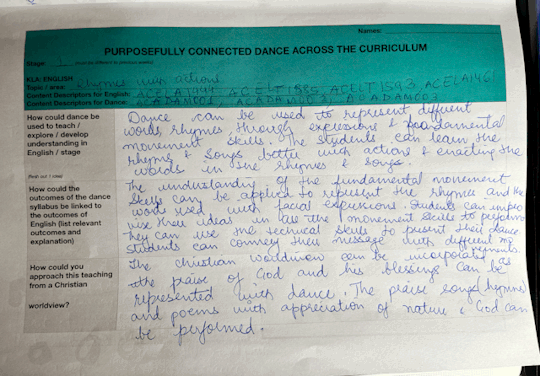 Names:
PURPOSEFULLY CONNECTED DANCE ACROSS THE CURRICULUM
Stage: 1
KLA: ENGLISH
Topic / area: Rhymes with actions
Content Descriptors for English: ACELT 1585, ACELT 1593, ACELA 146
Content Descriptors for Dance: ACADAM002, ACADAM003
How could dance be used to teach / explore / develop understanding in English / stage
Dance can be used to represent different
words rhymes through expressions & fundamental
movement skills. The students can learn the
rhyms & songs better with actions & enacting the
words in the rhymes & songs.
How could the outcomes of the dance syllabus be linked to the outcomes of English (list relevant outcomes and explanation)
The understanding of the fundamental movement
skills can be applied to represent the rhymes and the
words used with facial expressions. Students can impro
vise their ideas in use the movement skills to perform
they can use the technical skills to present their dance.
students can convey their message with different
How could you approach this teaching from a Christian worldview?
The christian worldview can be incorporated as
the praise of God and his blessings can be
represented with dance. The praise songs (hymns)
and poems with appreciation of nature & God can
be performed.